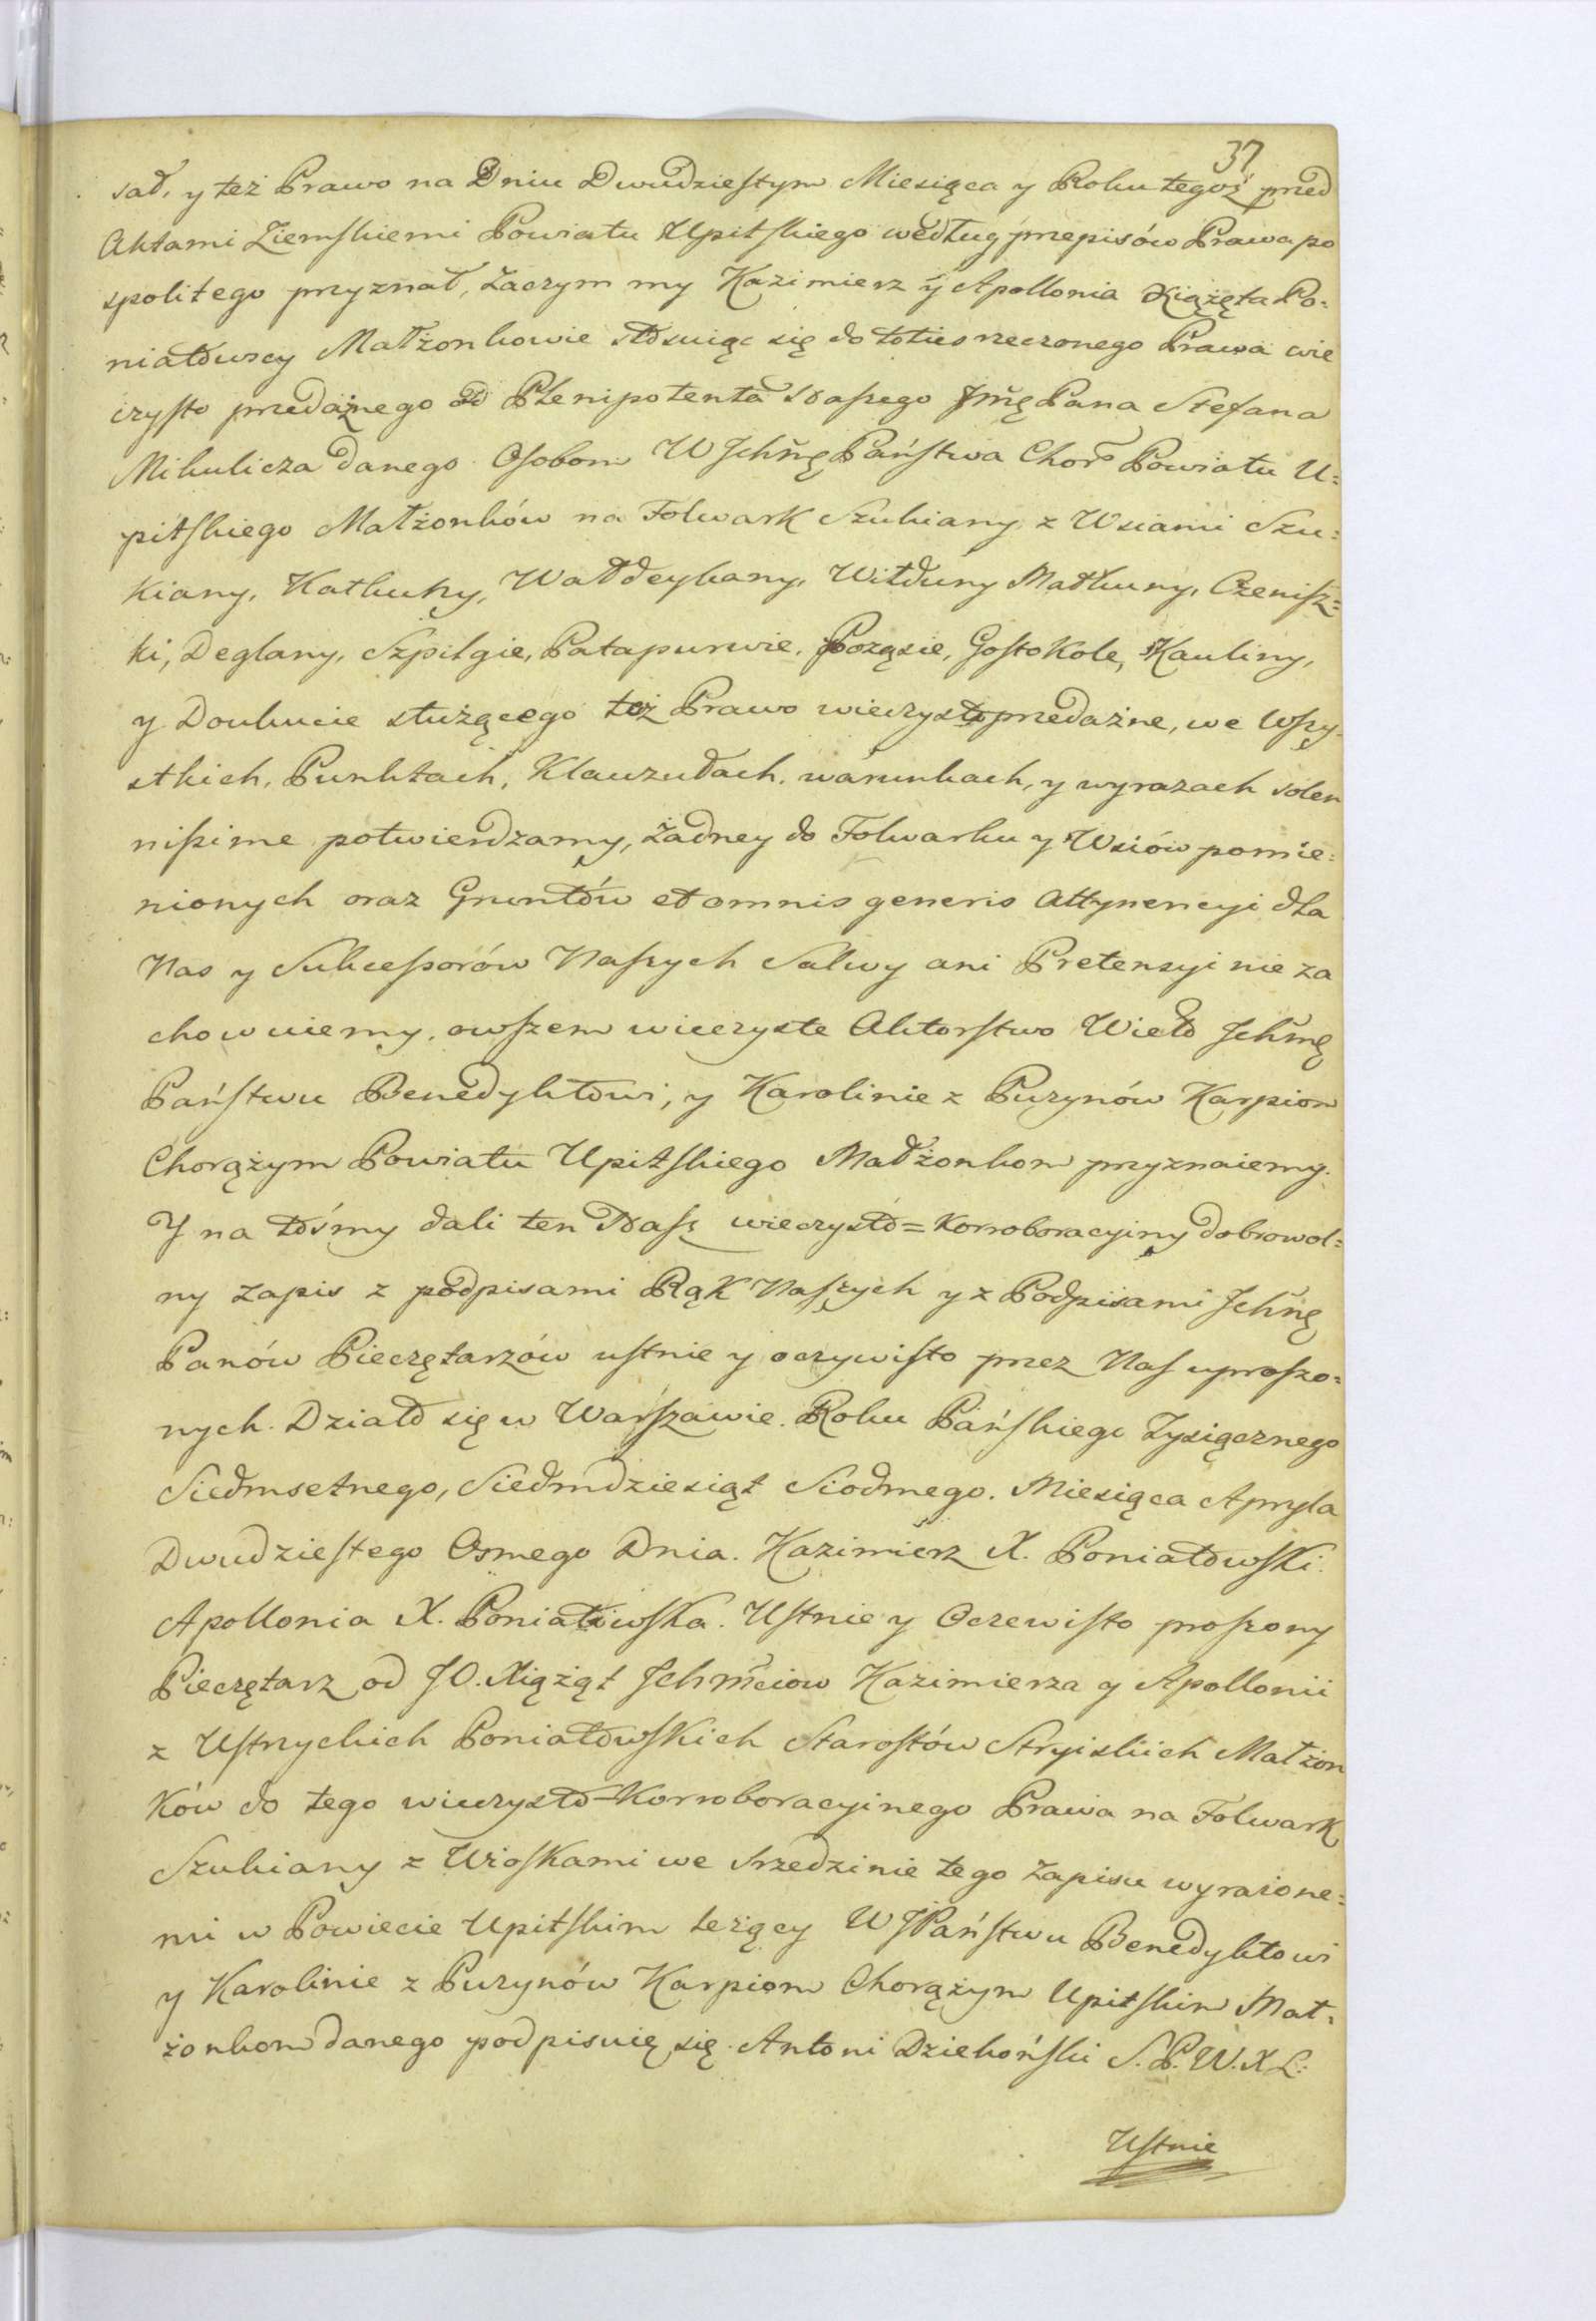 37
sał, y też Prawo na Dniu Dwudziestym Miesiąca y Roku tegoż przed
Aktami Ziemskiemi Powiatu Upitskiego według przepisów Prawa po
spolitego przyznał, Zaczym my Kazimierz y Apollonia Xiążęta Po=
niatowscy Małżonkowie stosuiąc się do toties rzeczonego Prawa wie
czysto przedażnego od Plenipotenta Naszego Jmę Pana Stefana
Mikulicza danego Osobom W Jchmę Państwa Chor Powiatu U=
pitskiego Małżonków na Folwark Szukiany z Wsiami Szu=
kiany, Katkuny, Wałdeykany, Witduny Matkuny, Czenisz=
ki, Deglany, Szpilgie, Patapurwie, Poząsie, Gostokole, Kauliny,
y Doukucie służącego też Prawo wieczysto przedażne, we Wszy=
stkich, Punktach, Klauzułach, warunkach, y wyrazach solen
nissime potwierdzamy, żadney do Folwarku y Wsiów pomie=
nionych oraz Gruntów et omnis generis Attynencyi dla
Nas y Sukcessorów Naszych Salwy ani Pretensyi nie za
chowuiemy, owszem wieczyste Aktorstwo Wieło Jchmę
Państwu Benedyktowi, y Karolinie z Puzynów Karpiom
Chorążym Powiatu Upitskiego Małżonkom przyznaiemy.
Y na tośmy dali ten Nasz wieczysto=Korroboracyiny dobrowol=
ny Zapis z podpisami Rąk Naszych y z Podpisami Jchmę
Panów Pieczętarzów ustnie y oczywisto przez Nas uproszo=
nych. Działo się w Warszawie. Roku Pańskiego Tysiącznego
Siedmsetnego, Siedmdziesiąt Siodmego. Miesiąca Apryla
Dwudziestego Osmego Dnia. Kazimierz X. Poniatowski.
Apollonia X. Poniatowska. Ustnie y Oczewisto proszony
Pieczętarz od JO. Xiążąt Jchmciow Kazimierza y Apollonii
z Ustrzyckich Poniatowskich Starostów Stryiskich Małżon
ków do tego wieczysto=Korroboracyinego Prawa na Folwark
Szukiany z Wioskami we Srzedzinie tego Zapisu wyrażone=
mi w Powiecie Upitskim leżący W J Państwu Benedyktowi
y Karolinie z Puzynów Karpiom Chorążym Upitskim Mał=
żonkom danego podpisuię się. Antoni Dziekoński S. P. W. X L:
Ustnie